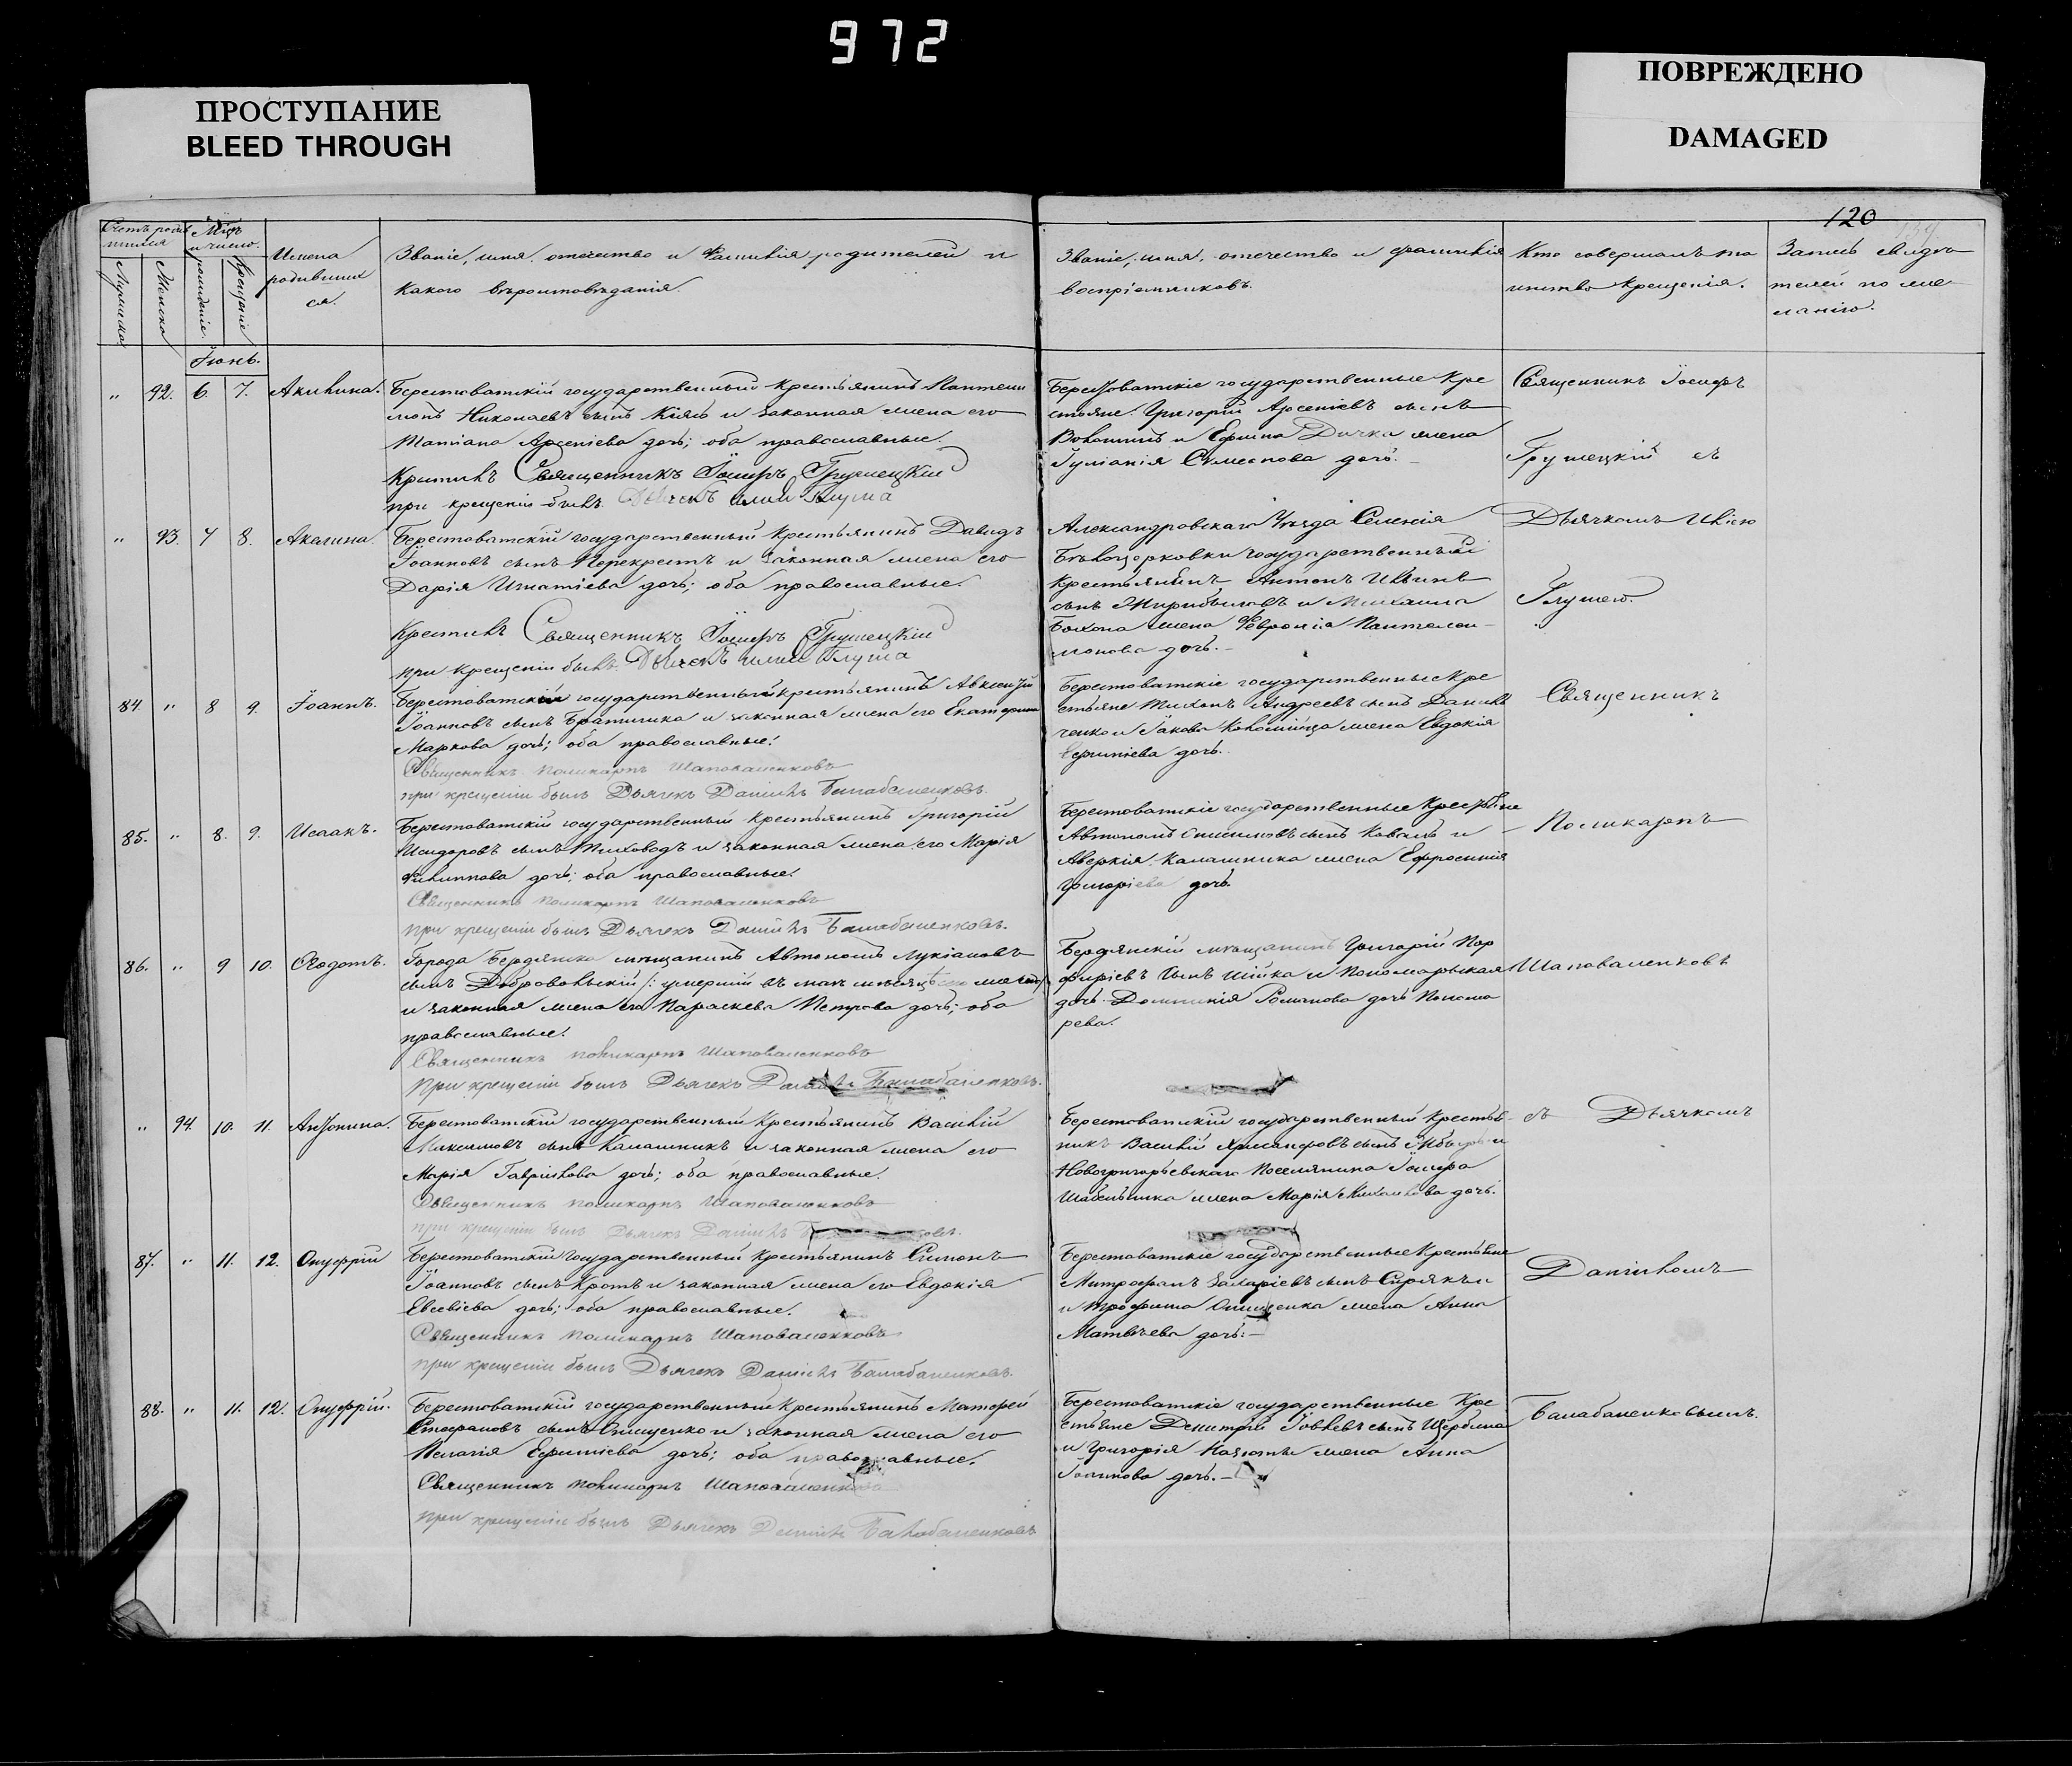 972
ПРОСТУПАНИЕ
BLEED THROUGH
ПОВРЕЖДЕНО
DAMAGED
120
Имена
родивших
ся.
Званіе, имя, отечество и Фамилія родителей и
какого вѣроисповѣданія.
Званіе, имя, отечество и фамилія
воспріемниковъ.
Кто совершалъ та
инство крещенія.
Запись свидѣ
телей по же
ланію.
Мужеска
Женска
рожденіе
крещеніе
Іюнь.
" 92. 6. 7. Акилина.
Берестоватскій государственный крестьянинъ Пантелеи
монъ Николаевъ сынъ и законная жена его
Татіана Арсеніева дочь; оба православные.
Крестилъ Священникъ Іосифъ Грушецкій
при крещеніи былъ Дьячекъ Глуша
Берестоватскіе государственные кре
стьяне Григорій Арсеніевъ сынъ
и Ефима Дичка жена
Іуліанія Симеонова дочь.
Священникъ Іосифъ
Грушецкій съ
" 93. 7 8. Акилина.
Берестоватскій государственный крестьянинъ Давидъ
Іоанновъ сынъ Перекрестъ и законная жена его
Дарія Игнатіева дочь; оба православные.
Крестилъ Священникъ Іосифъ Грушецкій
при крещеніи былъ Дьячекъ Глуша
Александровскаго Уѣзда Селенія
Бѣлоцерковки государственный
крестьянинъ Антонъ сынъ
и Михаила
жена Февронія Пантелеи
монова дочь.
Дьячкомъ
Глушею.
84. " 8 9. Іоаннъ.
Берестоватскій государственный крестьянинъ Авксентій
Іоанновъ сынъ Братишка и законная жена его Екатерина
Маркова дочь; оба православные.
Священникъ Поликарпъ Шаповаленковъ
при крещеніи былъ Дьячекъ Даніилъ Балабаненковъ.
Берестоватскіе государственные кре
стьяне Тихонъ Андреевъ сынъ Данил
ченко и Іакова жена Евдокія
дочь.
Священникъ
85. " 8. 9. Исаакъ.
Берестоватскій государственный крестьянинъ Григорій
Исидоровъ сынъ Тиховодъ и законная жена его Марія
Филиппова дочь; оба православные.
Священникъ Поликарпъ Шаповаленковъ
при крещеніи былъ Дьячекъ Даніилъ Балабаненковъ.
Берестоватскіе государственные крестьяне
Автономъ сынъ Коваль и
Аверкія Калашника жена Ефросинія
Григоріева дочь.
Поликарпъ
86. " 9 10. Ѳеодотъ.
Города Бердянска мѣщанинъ Автономъ Лукіановъ
сынъ Добровольскій /: умершій въ маѣ мѣсяцѣ
и законная жена его Параскева Петрова дочь; оба
православные.
Священникъ Поликарпъ Шаповаленковъ
при крещеніи былъ Дьячекъ Даніилъ Балабаненковъ.
Бердянскій мѣщанинъ Григорій Пор
фиріевъ сынъ Шійка и Пономарьская
дочь Домникія Романова дочь Понома
рева.
Шаповаленковъ
" 94. 10. 11. Антонина.
Берестоватскій государственный крестьянинъ Василій
Максимовъ сынъ Калашникъ и законная жена его
Марія Гавріилова дочь; оба православные.
Священникъ Поликарпъ Шаповаленковъ
при крещеніи былъ Дьячекъ Даніилъ
Берестоватскій государственный крестья
нинъ Василій сынъ и
Новогригорьевскаго Поселянина Іосифа
жена Марія Михаилова дочь.
съ Дьячкомъ
87. " 11. 12. Онуфрій
Берестоватскій государственный крестьянинъ Симонъ
Іоанновъ сынъ Кротъ и законная жена его Евдокія
Евсевіева дочь; оба православные.
Священникъ Поликарпъ Шаповаленковъ
при крещеніи былъ Дьячекъ Даніилъ Балабаненковъ.
Берестоватскіе государственные крестьяне
Митрофанъ Захаріевъ сынъ
и Трофима Онищенка жена Анна
Матвѣева дочь.
Даніиломъ
88. " 11. 12. Онуфрій.
Берестоватскій государственный крестьянинъ Матфей
Стефановъ сынъ Онищенко и законная жена его
Пелагія Ефиміева дочь; оба православные.
Священникъ Поликарпъ Шаповаленковъ
при крещеніи былъ Дьячекъ Даніилъ Балабаненковъ
Берестоватскіе государственные кре
стьяне Димитрій Іовлевъ сынъ Щербина
и Григорія жена Анна
Іоаннова дочь.
Балабаненковымъ.